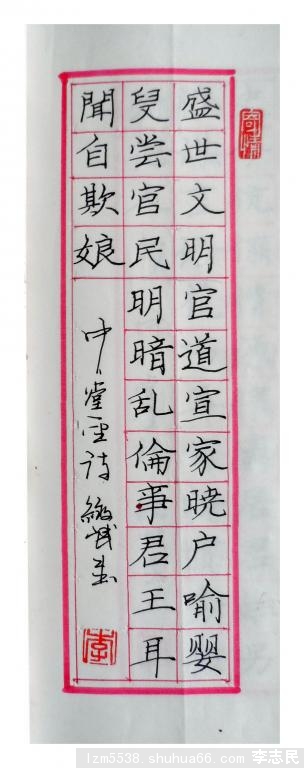 盛世文明官道宣家晓户喻婴
兒尝官民明暗乱倫事君王耳
聞自欺娘
中堂
诗
李
lzm5538.shuhua66.com 李志民